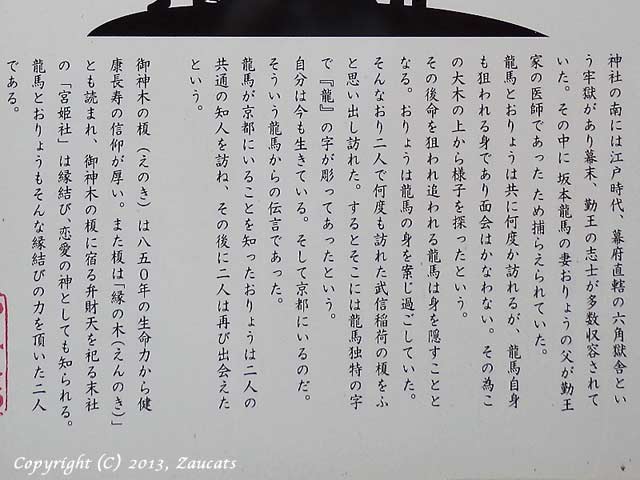 神社の南には江戸時代、幕府直轄の六角獄舎とい
う牢獄があり幕末、勤王の志士が多数収容されて
いた。その中に坂本龍馬の妻おりょうの父が勤王
家の医師であった ため捕らえられていた。
龍馬とおりょうは共に何度か訪れるが、龍馬自身
も狙われる身であり面会はかなわない。その為こ
の大木の上から様子を探ったという。
その後命を狙われ追われる龍馬は身を隠すことと
なる。おりょうは龍馬の身を案じ過ごしていた。
そんなおり二人で何度も訪れた武信稲荷の榎をふ
と思い出し訪れた。するとそこには龍馬独特の字
で『龍』の字が彫ってあったという。
自分は今も生きている。そして京都にいるのだ。
そういう龍馬からの伝言であった。
龍馬が京都にいることを知ったおりょうは二人の
共通の知人を訪ね、その後に二人は再び出会えた
という。
御神木の榎（えのき）は八五０年の生命力から健
康長寿の信仰が厚い。また榎は「縁の木（えんのき）」
とも読まれ、御神木の榎に宿る弁財天を祀る末社
の「宮姫社」は縁結び、恋愛の神としても知られる。
龍馬とおりょうもそんな縁結びの力を頂いた二人
である。
Copyright (C) 2013, Zaucats